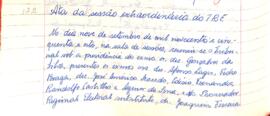 Ata da sessão extraordinária do TRE
Ao dois nove de setembro de mil novecentos e cin-
quenta e oito, na sala de sessões, reuniu-se o Tribu-
nal sob a presidência do exmo. sr. des. Gonçalves da
Silva, presentes os exmos srs. drs. Afonso Regis, Pedro
Braga, dr. José Américo Macedo, Edésio Fernandes,
Randolfo e Lima, dr. Procurador
Regional Eleitoral substituto, dr. Joaquim Ferreira